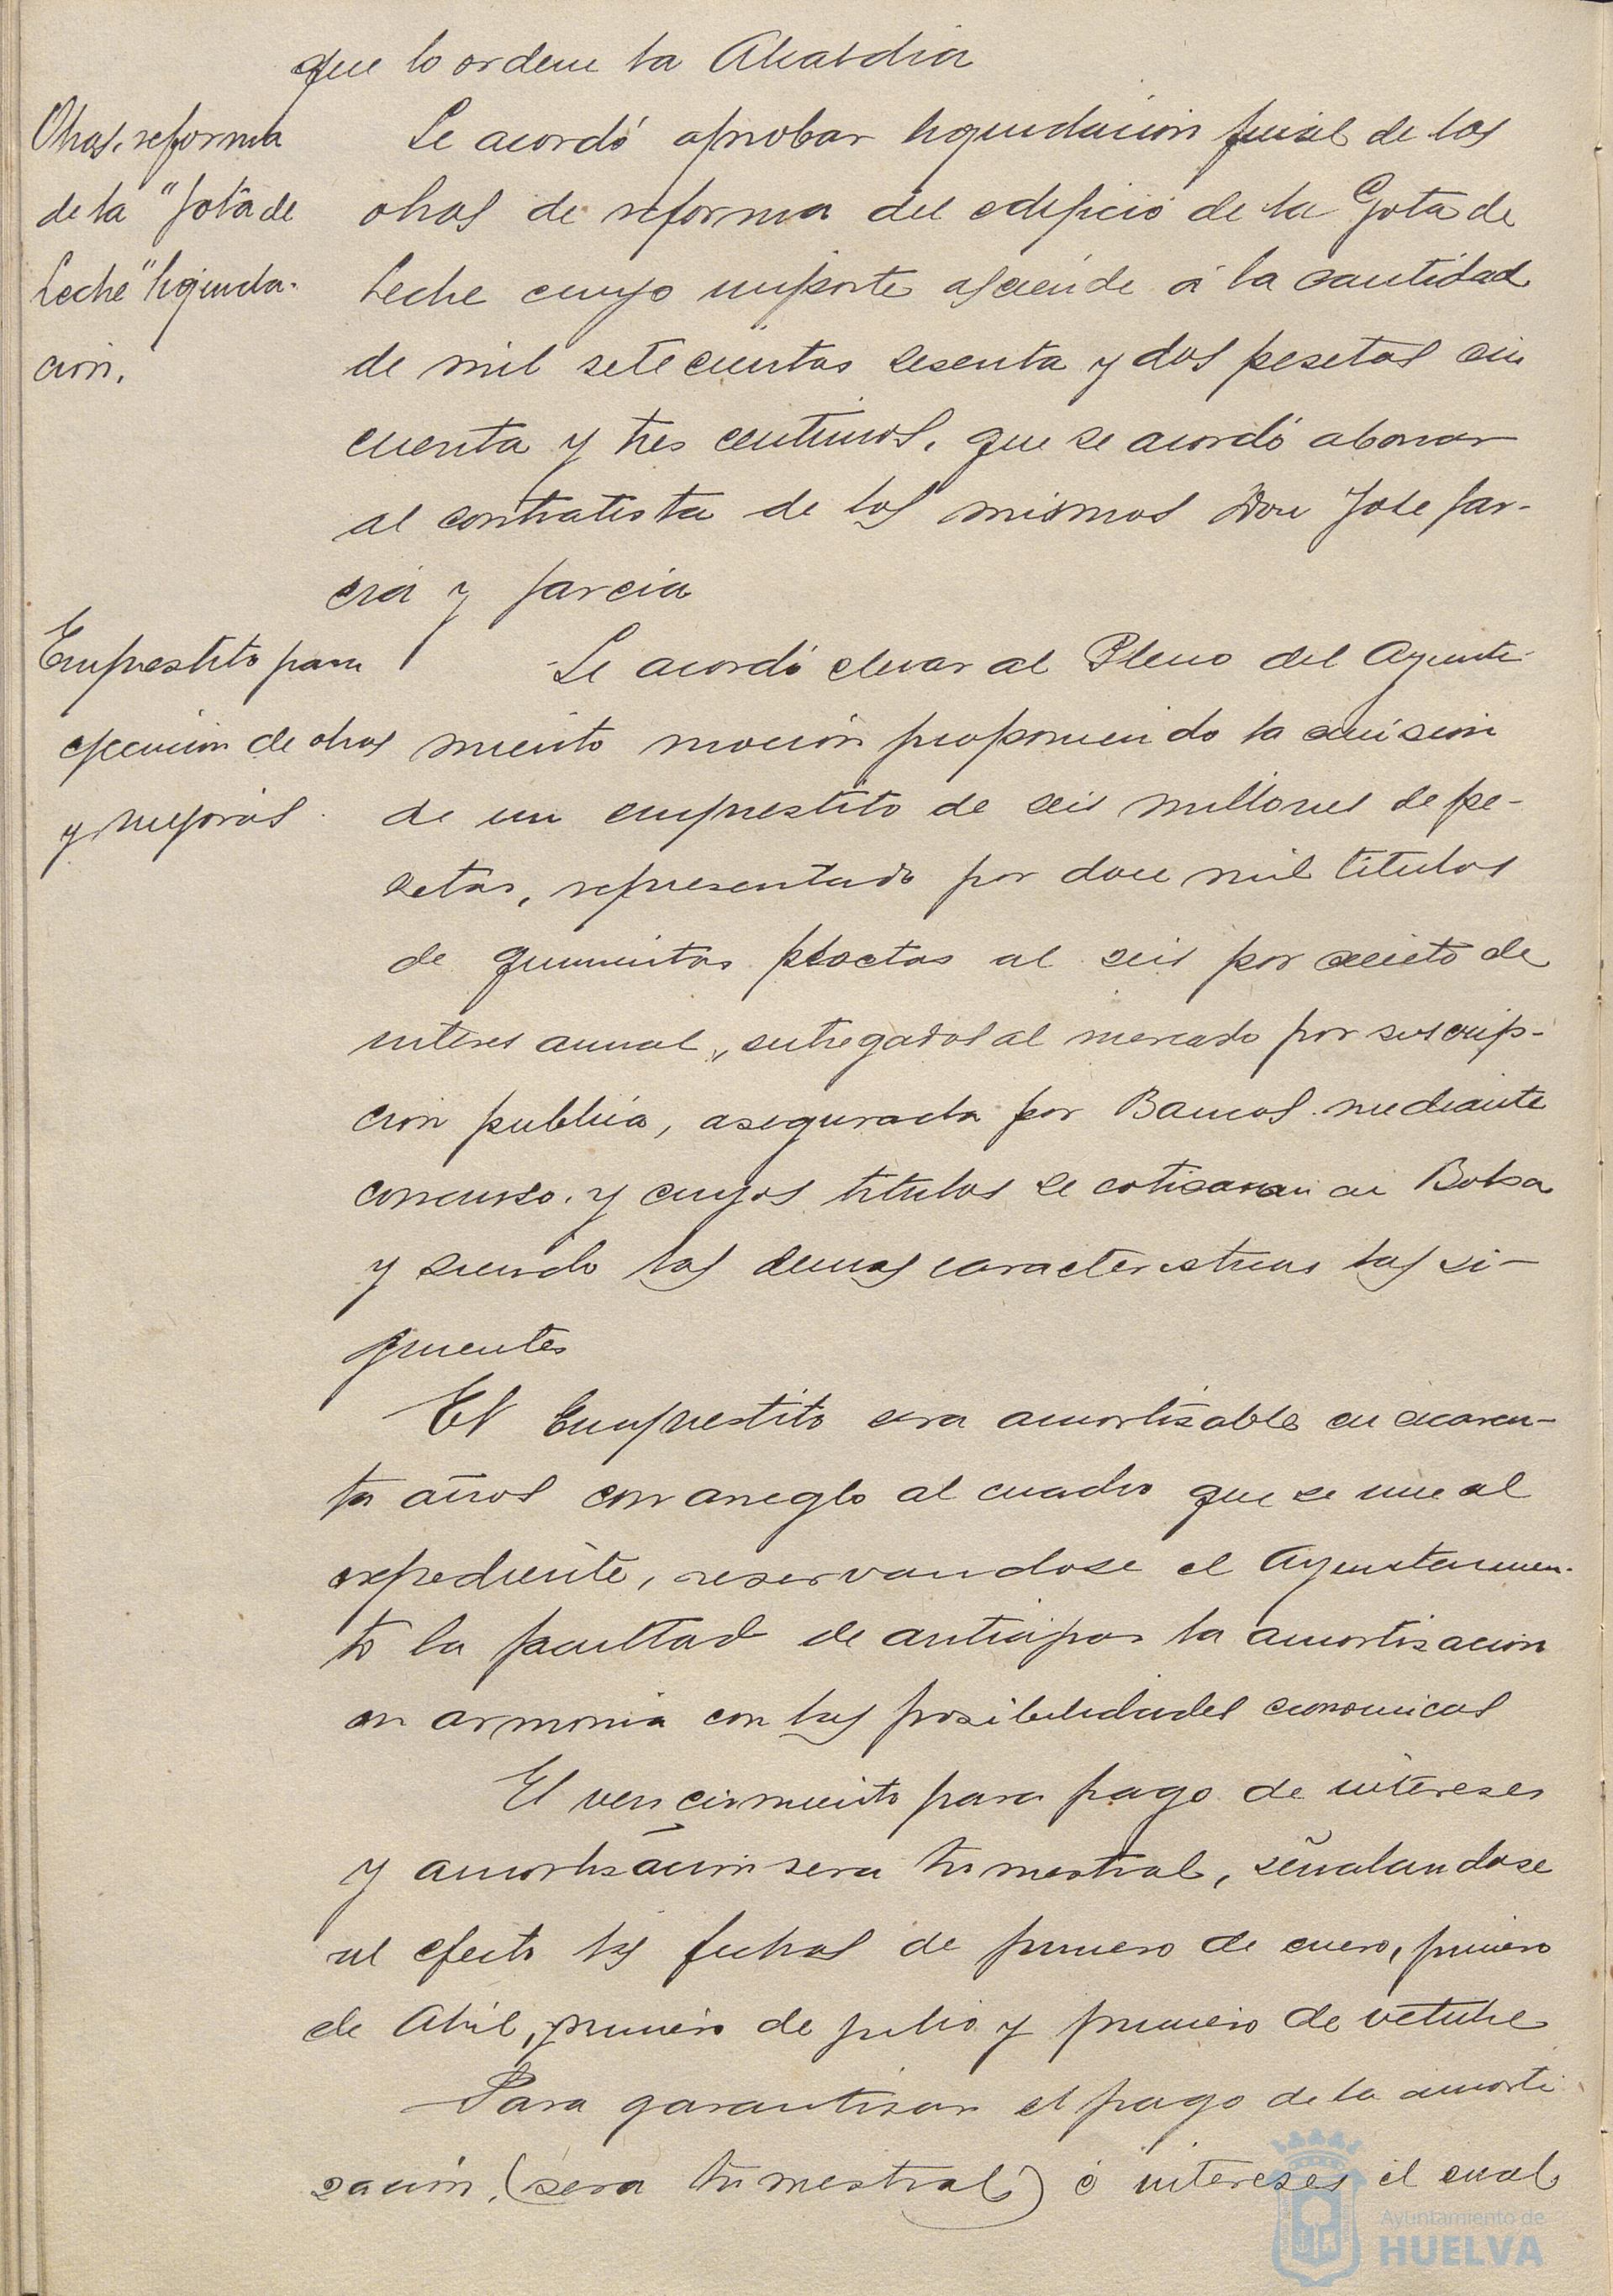 que lo ordene la Alcaldia
Obras reforma
de la "Gota de
Leche" liquida-
ción.
Se acordó aprobar liquidación final de las
obras de reforma del edificio de la Gota de
Leche cuyo importe asciende á la cantidad
de mil setecientas sesenta y dos pesetas cin
cuenta y tres centimos, que se acordó abonar
al contratista de las mismas Don Jose Gar-
cia y Garcia
Emprestito para
ejecución de obras
y mejoras.
Se acordó elevar al Pleno del Ayunta
miento moción proponiendo la emisión
de un emprestito de seis millones de pe-
setas, representado por doce mil titulos
de quinientas pesetas al seis por ciento de
interes anual, entregados al mercado por suscrip-
cion publica, asegurada por Bancos mediante
concurso y cuyos titulos se cotizaran en Bolsa
y siendo las demas caracteristicas las si-
guientes
El Emprestito sera amortizable en cuaren-
ta años con arreglo al cuadro que se une al
expediente, reservandose el Ayuntamien-
to la facultad de anticipar la amortizacion
en armonia con las posibilidades economicas
El vencimiento para pago de intereses
y amortización sera trimestral, señalandose
al efecto las fechas de primero de enero, primero
de Abril, primero de julio y primero de octubre
Para garantizar el pago de la amorti
zación, (sera trimestral) é intereses el cual
Ayuntamiento de
HUELVA